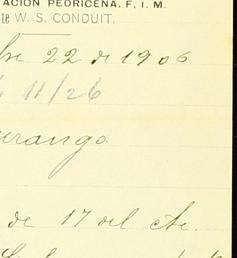 ACION PEDRICEÑA, F. I. M.
te W. S. CONDUIT.
bre 22 de 1906
11/26
urango
de 17 del cte.